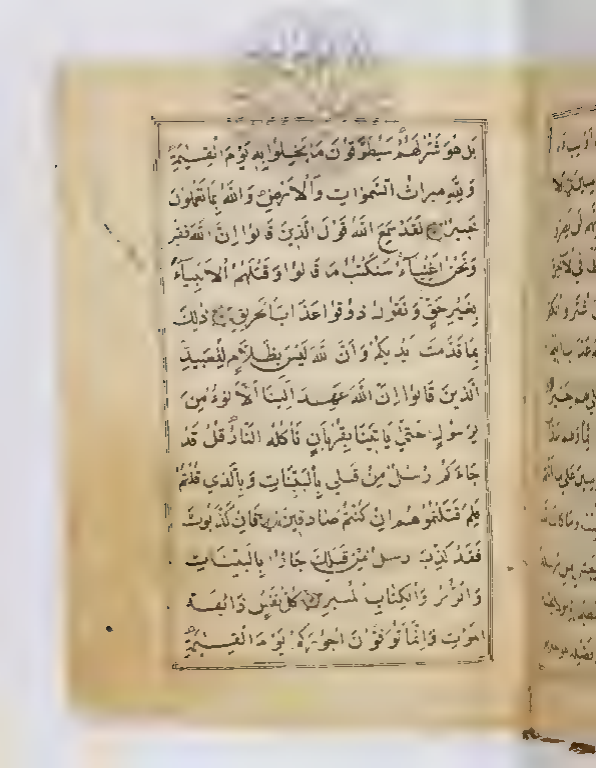 بَل هُوَ شَرٌّ لَهُمْ سَيُطَوَّقُوْنَ مَا بَخِلُوْا بِهِ يَوْمَ الْقِيٰمَةِ
وَلِلّٰهِ مِيرَاثُ السَّمٰوَاتِ وَالْاَرْضِ وَاللّٰهُ بِمَا تَعْمَلُونَ
خَبِيرٌ لَقَدْ سَمِعَ اللّٰهُ قَوْلَ الَّذِينَ قَالُوا اِنَّ اللّٰهَ فَقِيْرٌ
وَنَحْنُ اَغْنِيَآءُ سَنَكْتُبُ مَا قَالُوا وَقَتْلَهُمُ الْاَنْبِيَآءَ
بِغَيْرِ حَقٍّ وَنَقُولُ ذُوقُوا عَذَابَ الْحَرِيقِ ذٰلِكَ
بِمَا قَدَّمَتْ اَيْدِيكُمْ وَاَنَّ اللّٰهَ لَيْسَ بِظَلَّامٍ لِلْعَبِيدِ
الَّذِينَ قَالُوا اِنَّ اللّٰهَ عَهِدَ اِلَيْنَا اَلَّا نُؤْمِنَ
لِرَسُولٍ حَتّٰى يَاْتِيَنَا بِقُرْبَانٍ تَاْكُلُهُ النَّارُ قُلْ قَدْ
جَاءَكُمْ رُسُلٌ مِنْ قَبْلِي بِالْبَيِّنَاتِ وَبِالَّذِي قُلْتُمْ
فَلِمَ قَتَلْتُمُوهُمْ اِنْ كُنْتُمْ صَادِقِينَ فَاِنْ كَذَّبُوكَ
فَقَدْ كُذِّبَ رُسُلٌ مِنْ قَبْلِكَ جَاؤُا بِالْبَيِّنَاتِ
وَالزُّبُرِ وَالْكِتَابِ الْمُنِيرِ كُلُّ نَفْسٍ ذَائِقَةُ
الْمَوْتِ وَاِنَّمَا تُوَفَّوْنَ اُجُورَكُمْ يَوْمَ الْقِيٰمَةِ